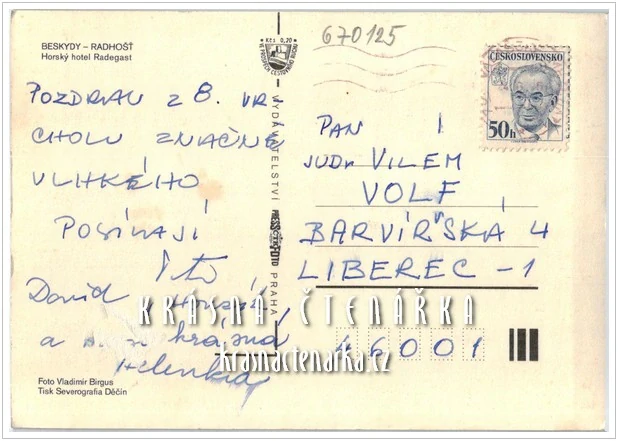 BESKYDY – RADHOŠŤ
Horský hotel Radegast
Kčs 0,20
670125
ČESKOSLOVENSKO
50h
POZDRAV z 8. VR-
CHOLU ZNAČNĚ
VLHKÉHO
POSÍLAJÍ
David
a krásná
Helenka
VYDAVATELSTVÍ PRESSFOTO PRAHA
PAN
JUDr VILEM
VOLF
BARVÍŘSKÁ 4
LIBEREC – 1
46001
KRÁSNÁ ČTENÁŘKA
krasnactenarka.cz
Foto Vladimír Birgus
Tisk Severografia Děčín